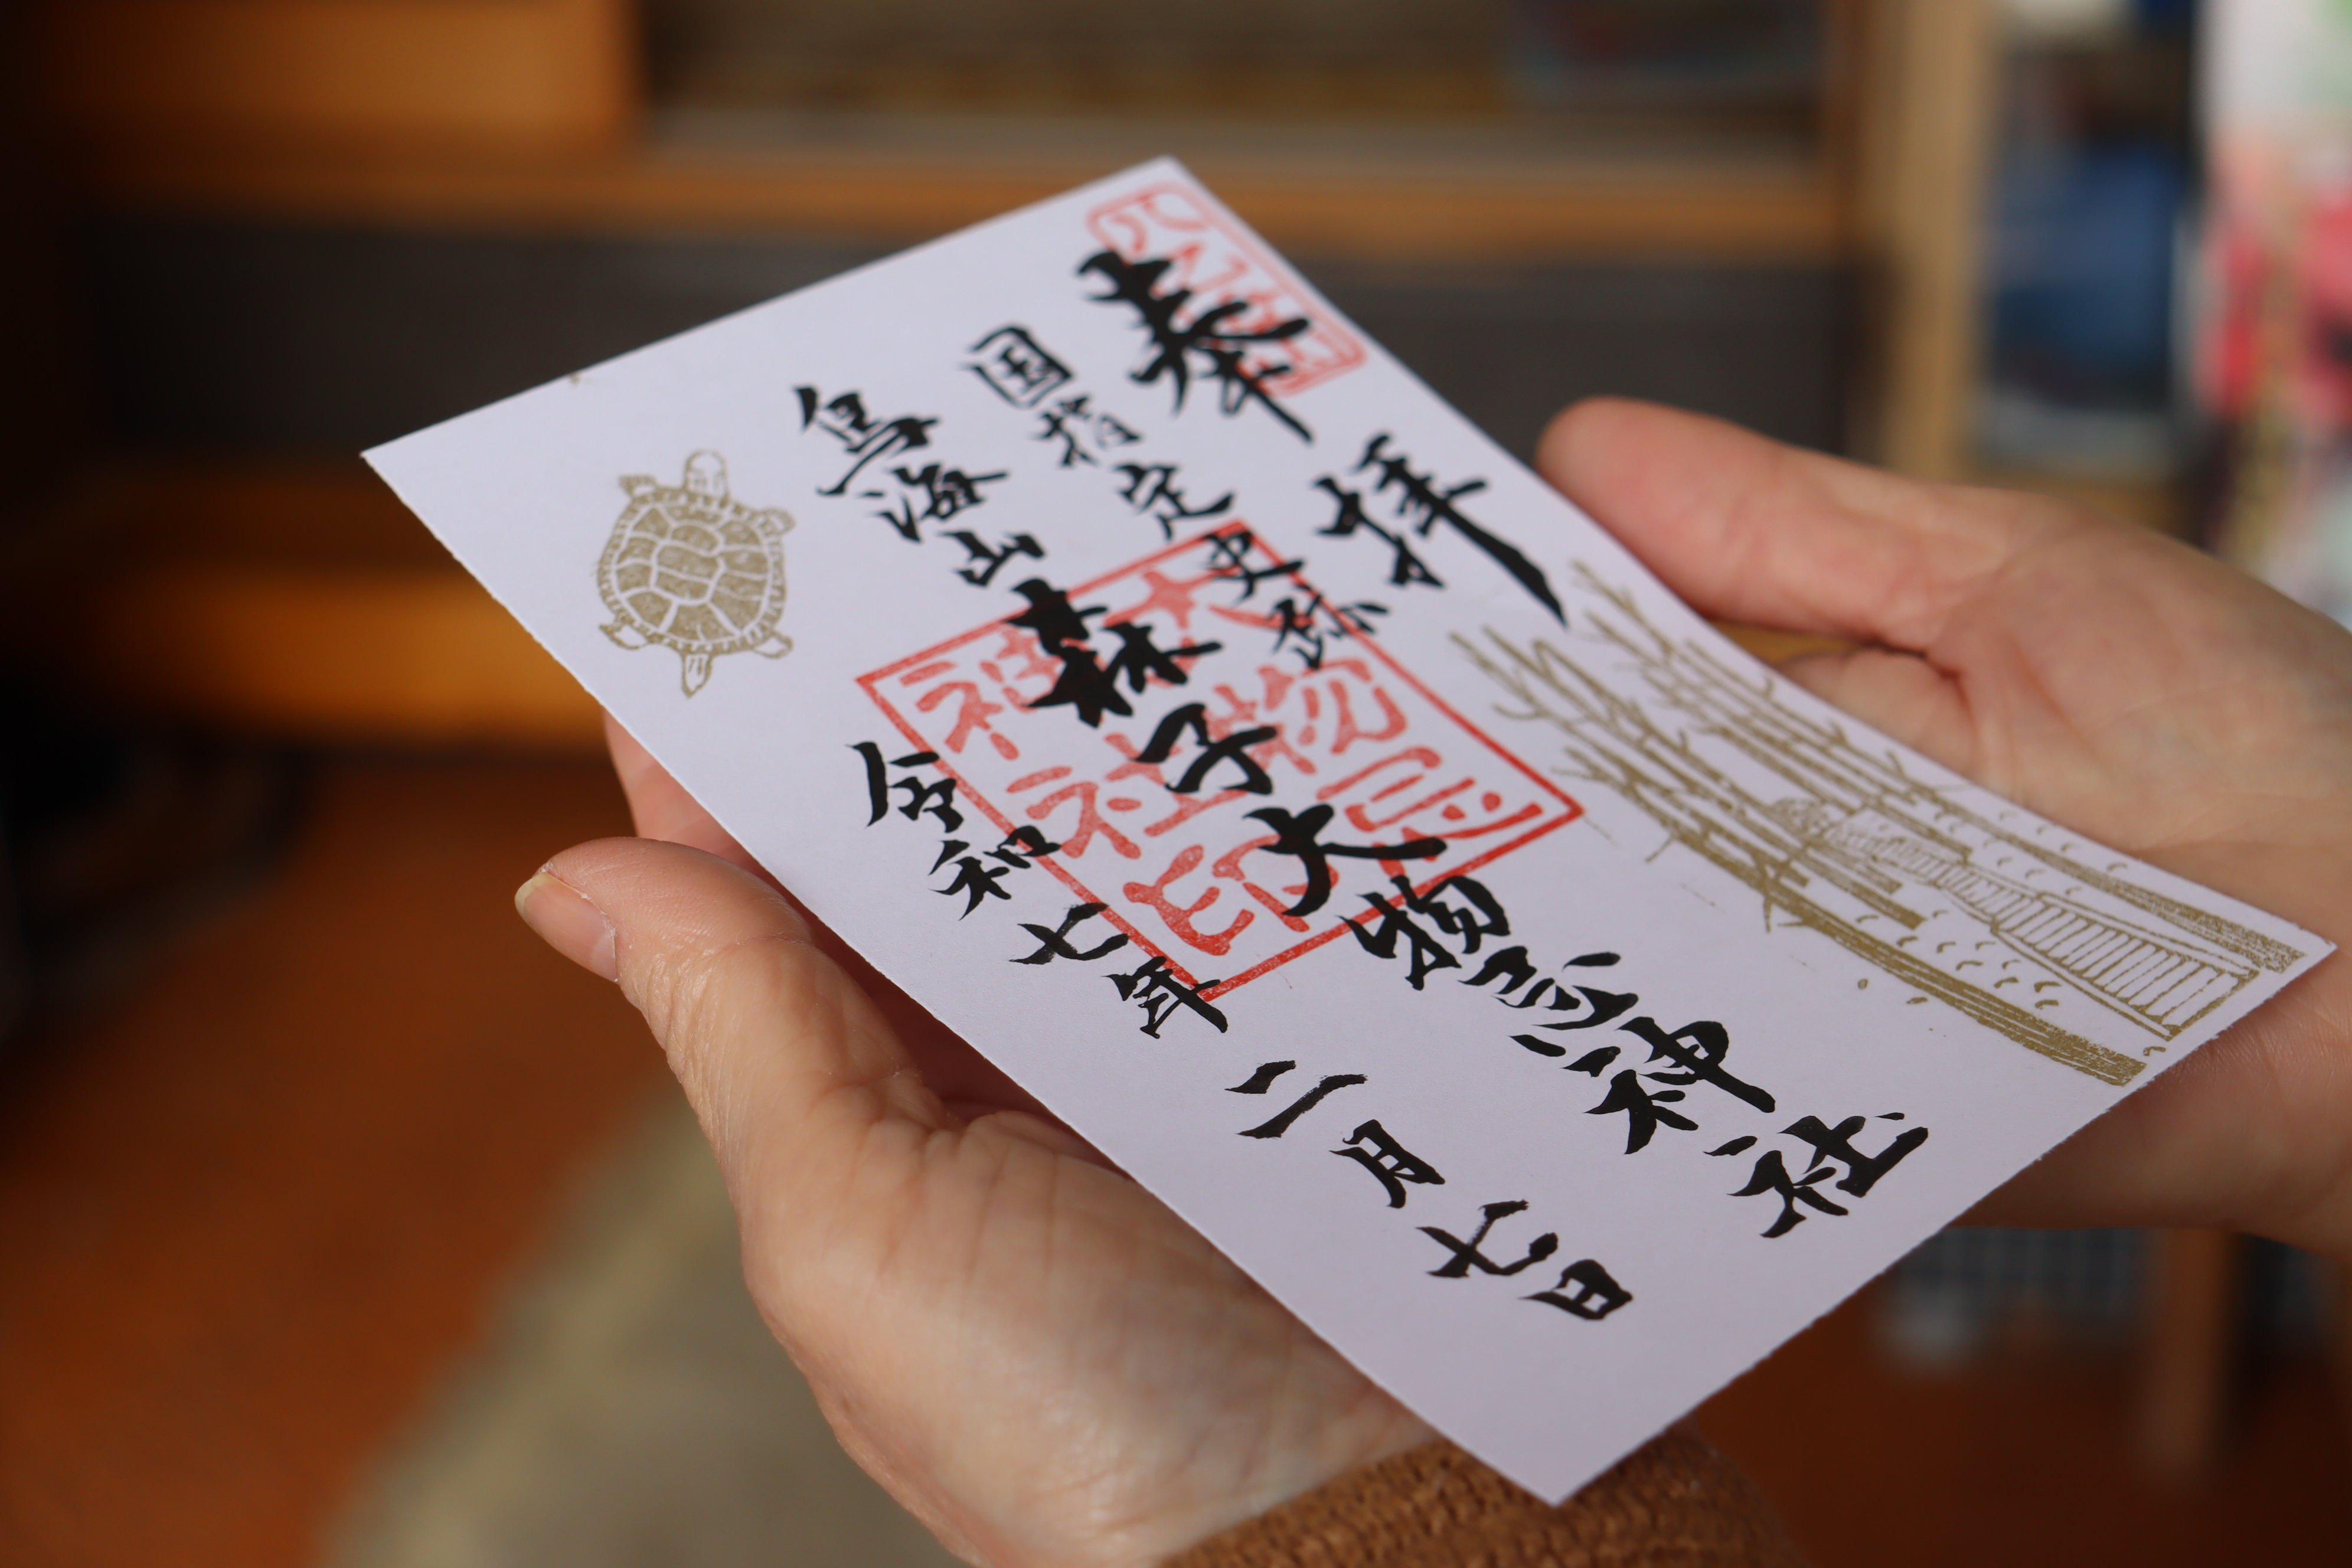 奉拝
国指定史跡
鳥海山森子大物忌神社
令和七年二月七日
大物忌
神社印